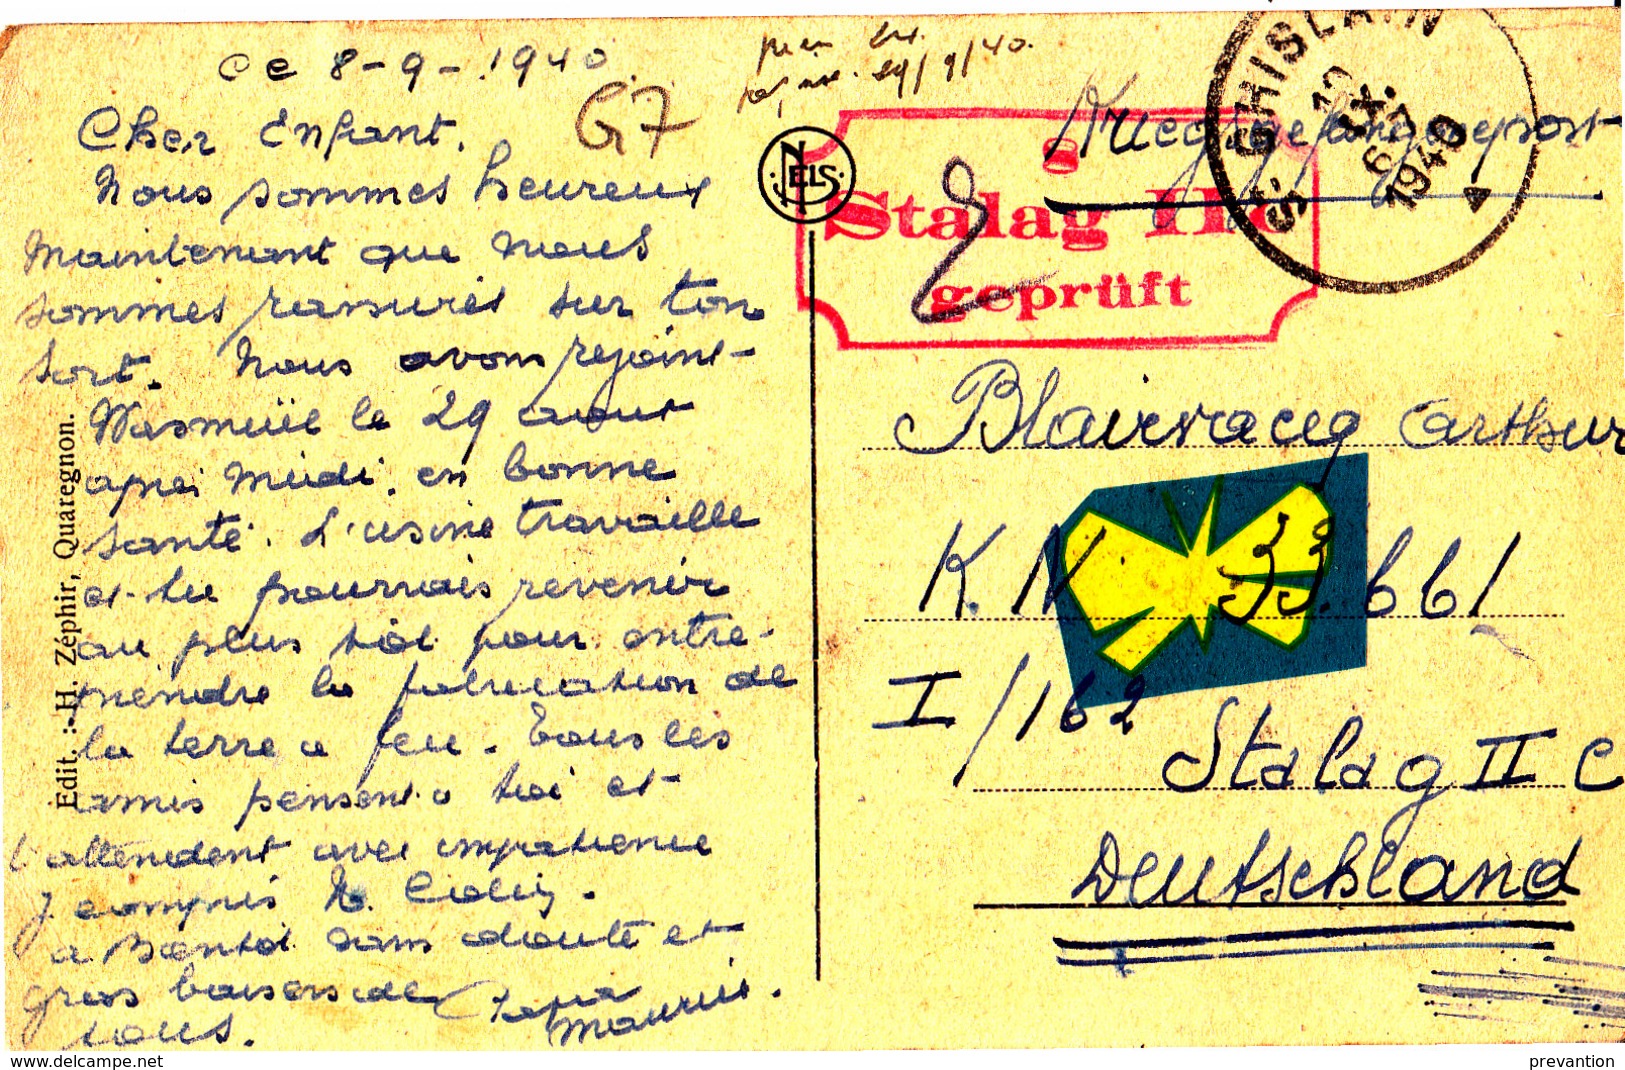 ce 8-9-1940
G7
29/9/40.
Cher Enfant.
Nous sommes heureux
maintenant que nous
sommes rassurés sur ton
sort. Nous avons rejoint
Wasmuël le 29 aout
après midi. en bonne
santé. L'usine travaille
et tu pourrais revenir
au plus tôt pour entre-
prendre la fabrication de
la terre a feu. Tous les
amis pensent a toi et
t'attendent avec impatience
y compris M.
a Bientôt sans doute et
gros baisers de
tous.
Papa
Maurice.
Edit. : H. Zéphir, Quaregnon.
NELS
Kriegsgefangenepost
8
Stalag IIc
geprüft
St. GHISLAIN
12
IX.
6-7
1940
Arthur
K. N 33.661
I/162
Stalag II C
Deutschland
www.delcampe.net
prevantion